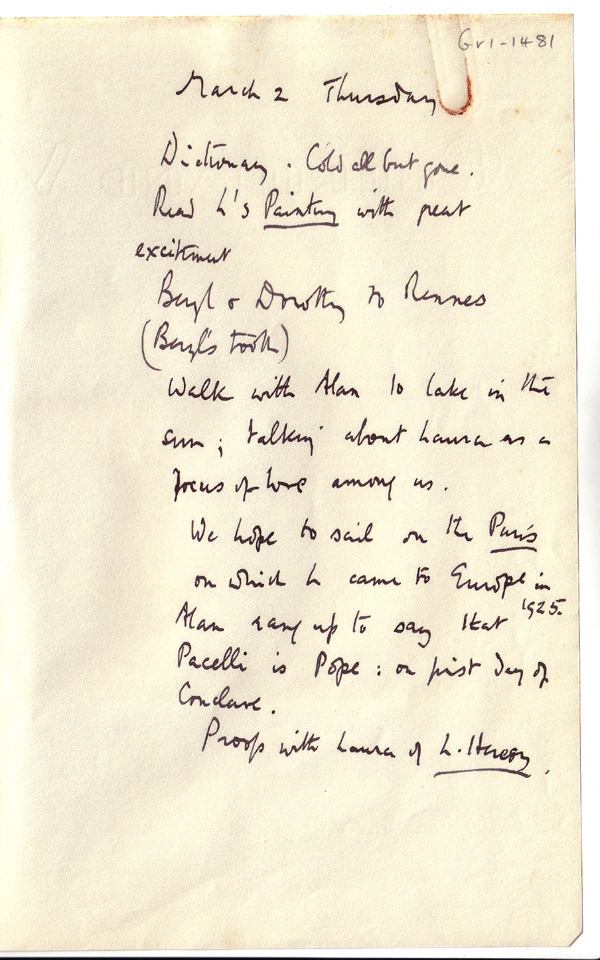 Gv1-1481
March 2 Thursday
Dictionary. Cold all but gone.
Read L's Painting with great
excitement
Beryl & Dorothy to Rennes
(Beryl's tooth)
Walk with Alan to lake in the
sun; talking about Laura as a
focus of love among us.
We hope to sail on the Paris
on which L came to Europe in
1925.
Alan rang up to say that
Pacelli is Pope: on first day of
Conclave.
Proofs with Laura of L. Heresy.